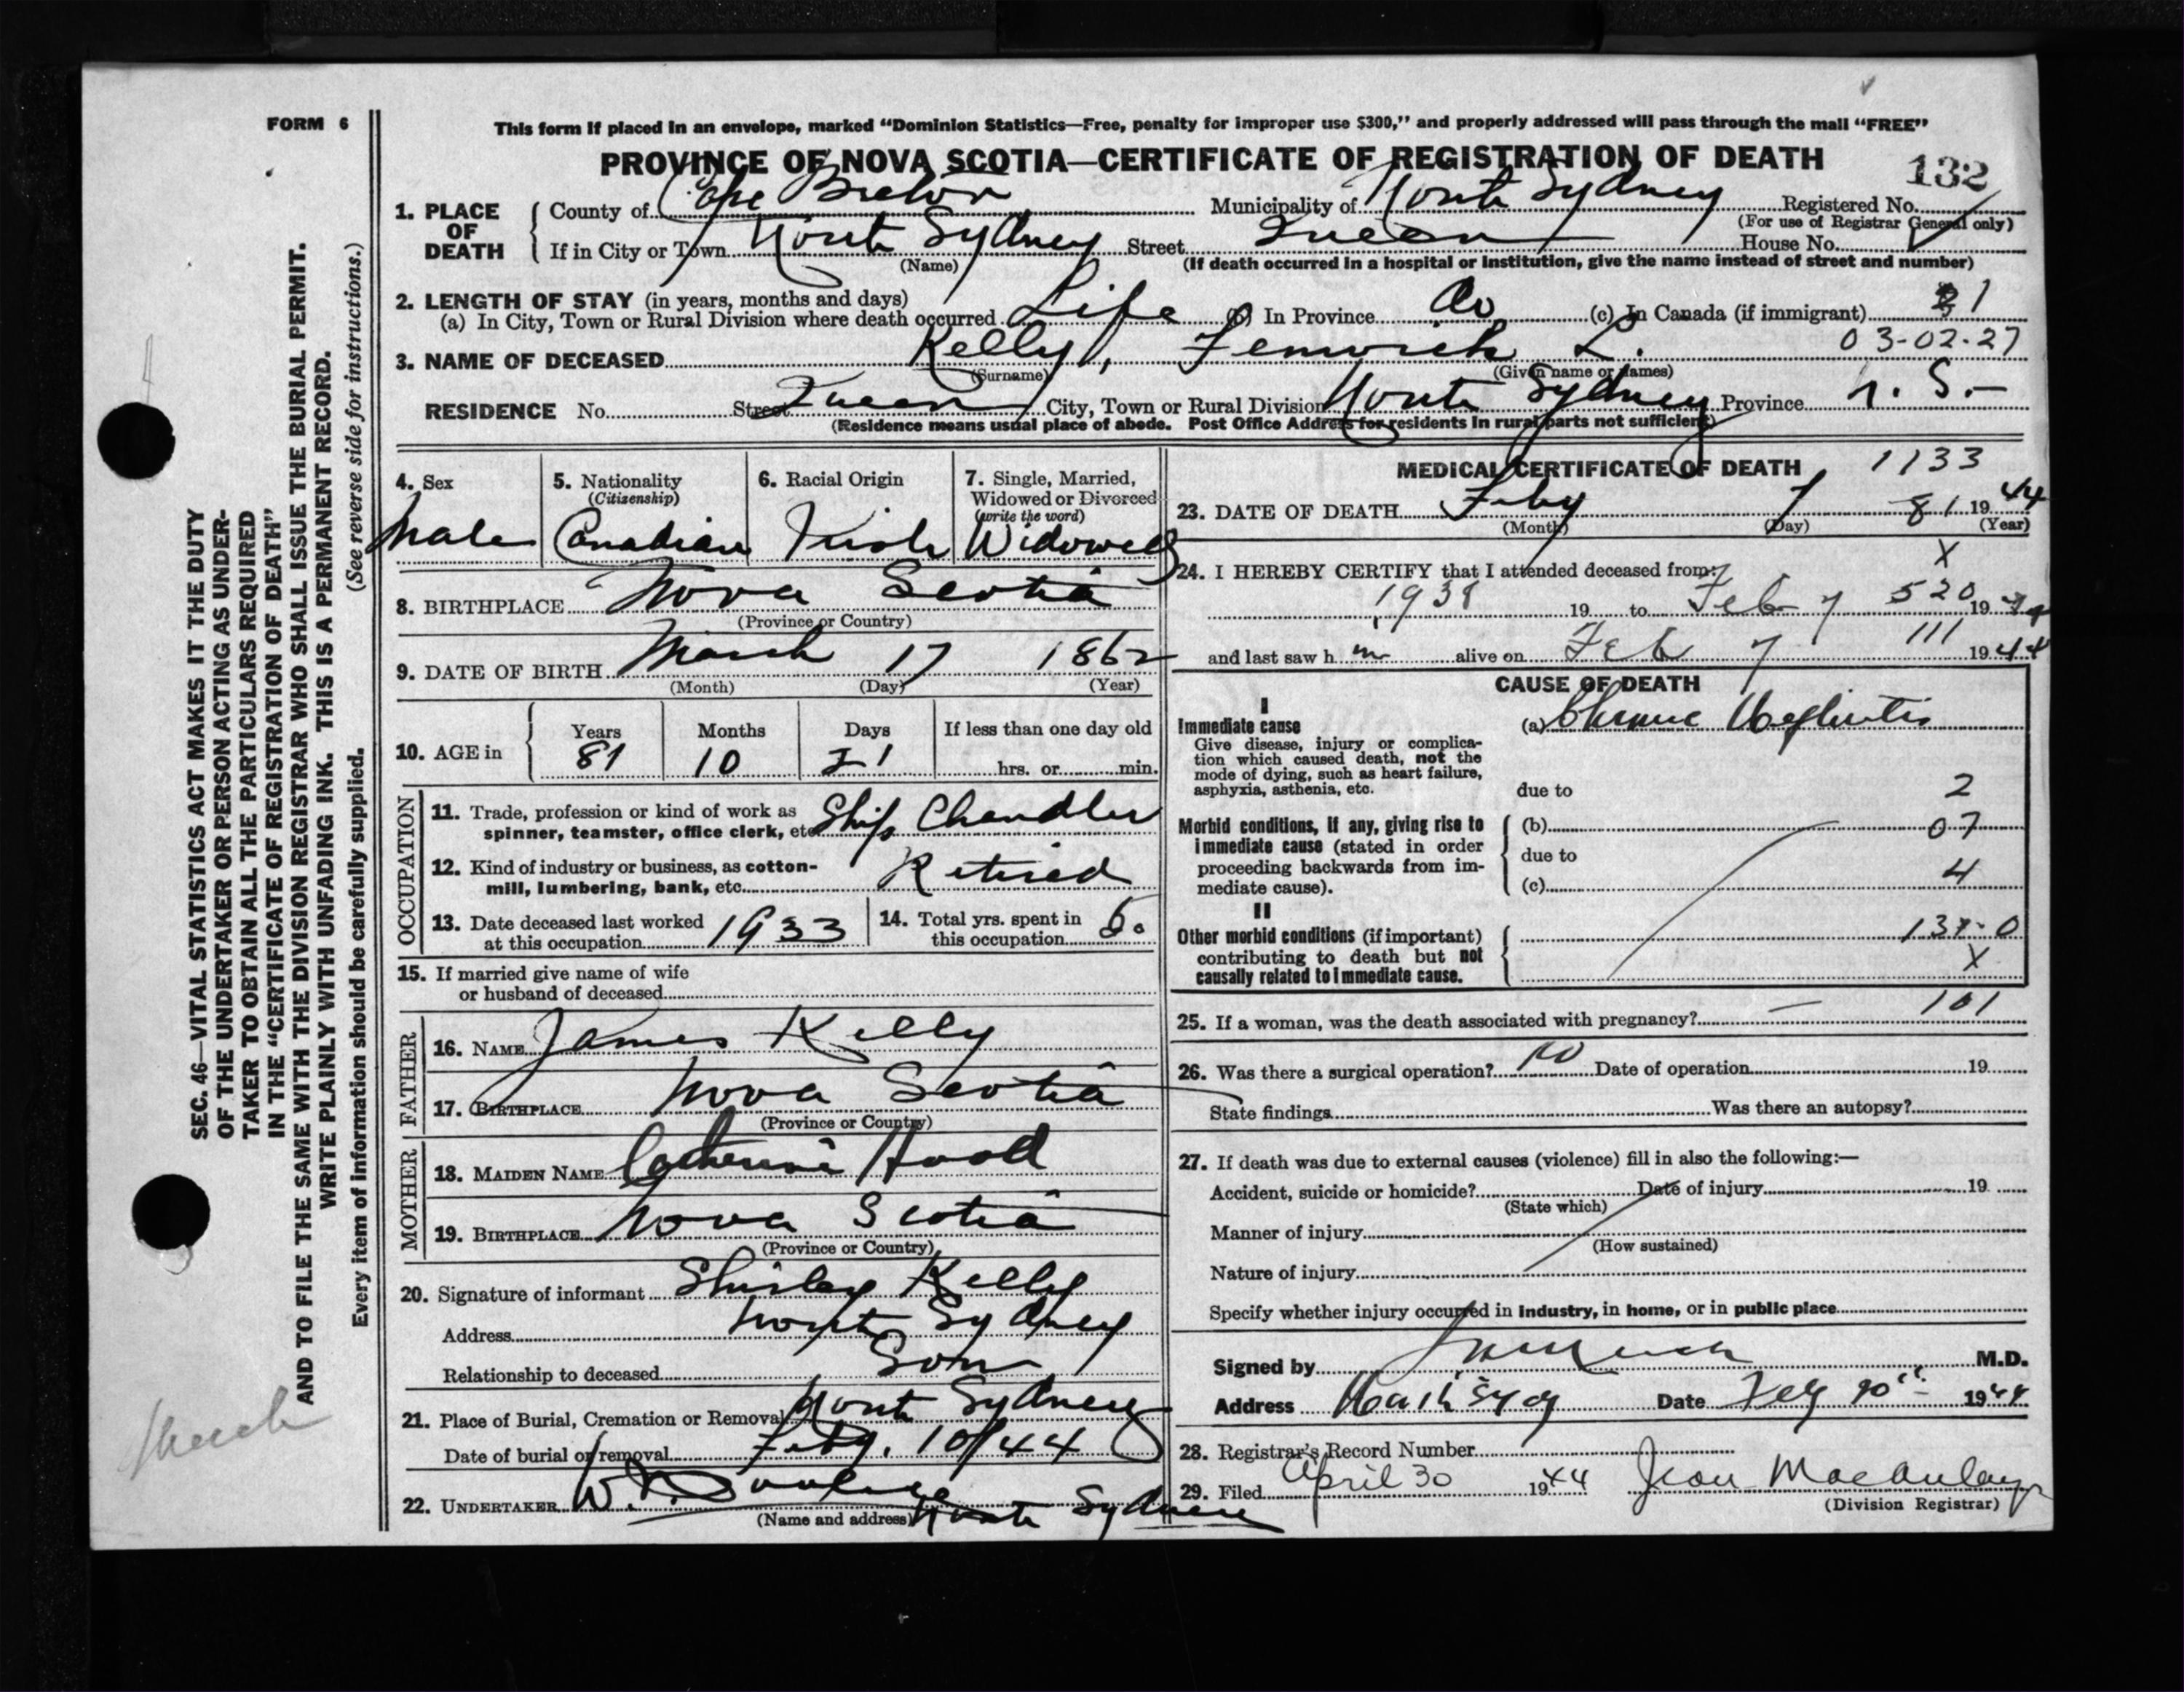 FORM 6
This form if placed in an envelope, marked “Dominion Statistics—Free, penalty for improper use $300,” and properly addressed will pass through the mail “FREE”
PROVINCE OF NOVA SCOTIA—CERTIFICATE OF REGISTRATION OF DEATH
132
1. PLACE OF DEATH
County of Cape Breton Municipality of North Sydney Registered No.
(For use of Registrar General only)
If in City or Town North Sydney Street Queen House No.
(Name) (If death occurred in a hospital or institution, give the name instead of street and number)
2. LENGTH OF STAY (in years, months and days)
(a) In City, Town or Rural Division where death occurred Life (b) In Province do (c) In Canada (if immigrant) 1
3. NAME OF DECEASED Kelly, Fenwick L. 03-02-27
(Surname) (Given name or names)
RESIDENCE No. Street Queen City, Town or Rural Division North Sydney Province N. S.-
(Residence means usual place of abode. Post Office Address for residents in rural parts not sufficient)
4. Sex
Male
5. Nationality
(Citizenship)
Canadian
6. Racial Origin
Irish
7. Single, Married,
Widowed or Divorced
(write the word)
Widowed
8. BIRTHPLACE Nova Scotia
(Province or Country)
9. DATE OF BIRTH March 17 1862
(Month) (Day) (Year)
10. AGE in
Years Months Days If less than one day old
81 10 21 hrs. or min.
OCCUPATION
11. Trade, profession or kind of work as
spinner, teamster, office clerk, etc. Ship Chandler
12. Kind of industry or business, as cotton-
mill, lumbering, bank, etc. Retired
13. Date deceased last worked
at this occupation 1933
14. Total yrs. spent in
this occupation 60
15. If married give name of wife
or husband of deceased
FATHER
16. NAME James Kelly
17. BIRTHPLACE Nova Scotia
(Province or Country)
MOTHER
18. MAIDEN NAME Catherine Hood
19. BIRTHPLACE Nova Scotia
(Province or Country)
20. Signature of informant Shirley Kelly
Address North Sydney
Relationship to deceased Son
21. Place of Burial, Cremation or Removal North Sydney
Date of burial or removal Feby. 10/44
22. UNDERTAKER W.
(Name and address) North Sydney
MEDICAL CERTIFICATE OF DEATH 1133
23. DATE OF DEATH Feby 7 81 1944
(Month) (Day) (Year)
X
24. I HEREBY CERTIFY that I attended deceased from:
1938 19 to Feb 7 520 19 44
and last saw h im alive on Feb 7 111 1944
CAUSE OF DEATH
I
Immediate cause
Give disease, injury or complica-
tion which caused death, not the
mode of dying, such as heart failure,
asphyxia, asthenia, etc.
(a) Chronic Nephritis
due to 2
Morbid conditions, if any, giving rise to
immediate cause (stated in order
proceeding backwards from im-
mediate cause).
(b) 07
due to
(c) 4
II
Other morbid conditions (if important)
contributing to death but not
causally related to immediate cause.
131-0
X
25. If a woman, was the death associated with pregnancy? — 101
26. Was there a surgical operation? no Date of operation 19
State findings Was there an autopsy?
27. If death was due to external causes (violence) fill in also the following:—
Accident, suicide or homicide? Date of injury 19
(State which)
Manner of injury
(How sustained)
Nature of injury
Specify whether injury occurred in industry, in home, or in public place
Signed by M.D.
Address North Syd Date Feby 1944
28. Registrar's Record Number
29. Filed April 30 1944 Jean MacAulay
(Division Registrar)
SEC. 46—VITAL STATISTICS ACT MAKES IT THE DUTY
OF THE UNDERTAKER OR PERSON ACTING AS UNDER-
TAKER TO OBTAIN ALL THE PARTICULARS REQUIRED
IN THE “CERTIFICATE OF REGISTRATION OF DEATH”
AND TO FILE THE SAME WITH THE DIVISION REGISTRAR WHO SHALL ISSUE THE BURIAL PERMIT.
WRITE PLAINLY WITH UNFADING INK. THIS IS A PERMANENT RECORD.
Every item of information should be carefully supplied. (See reverse side for instructions.)